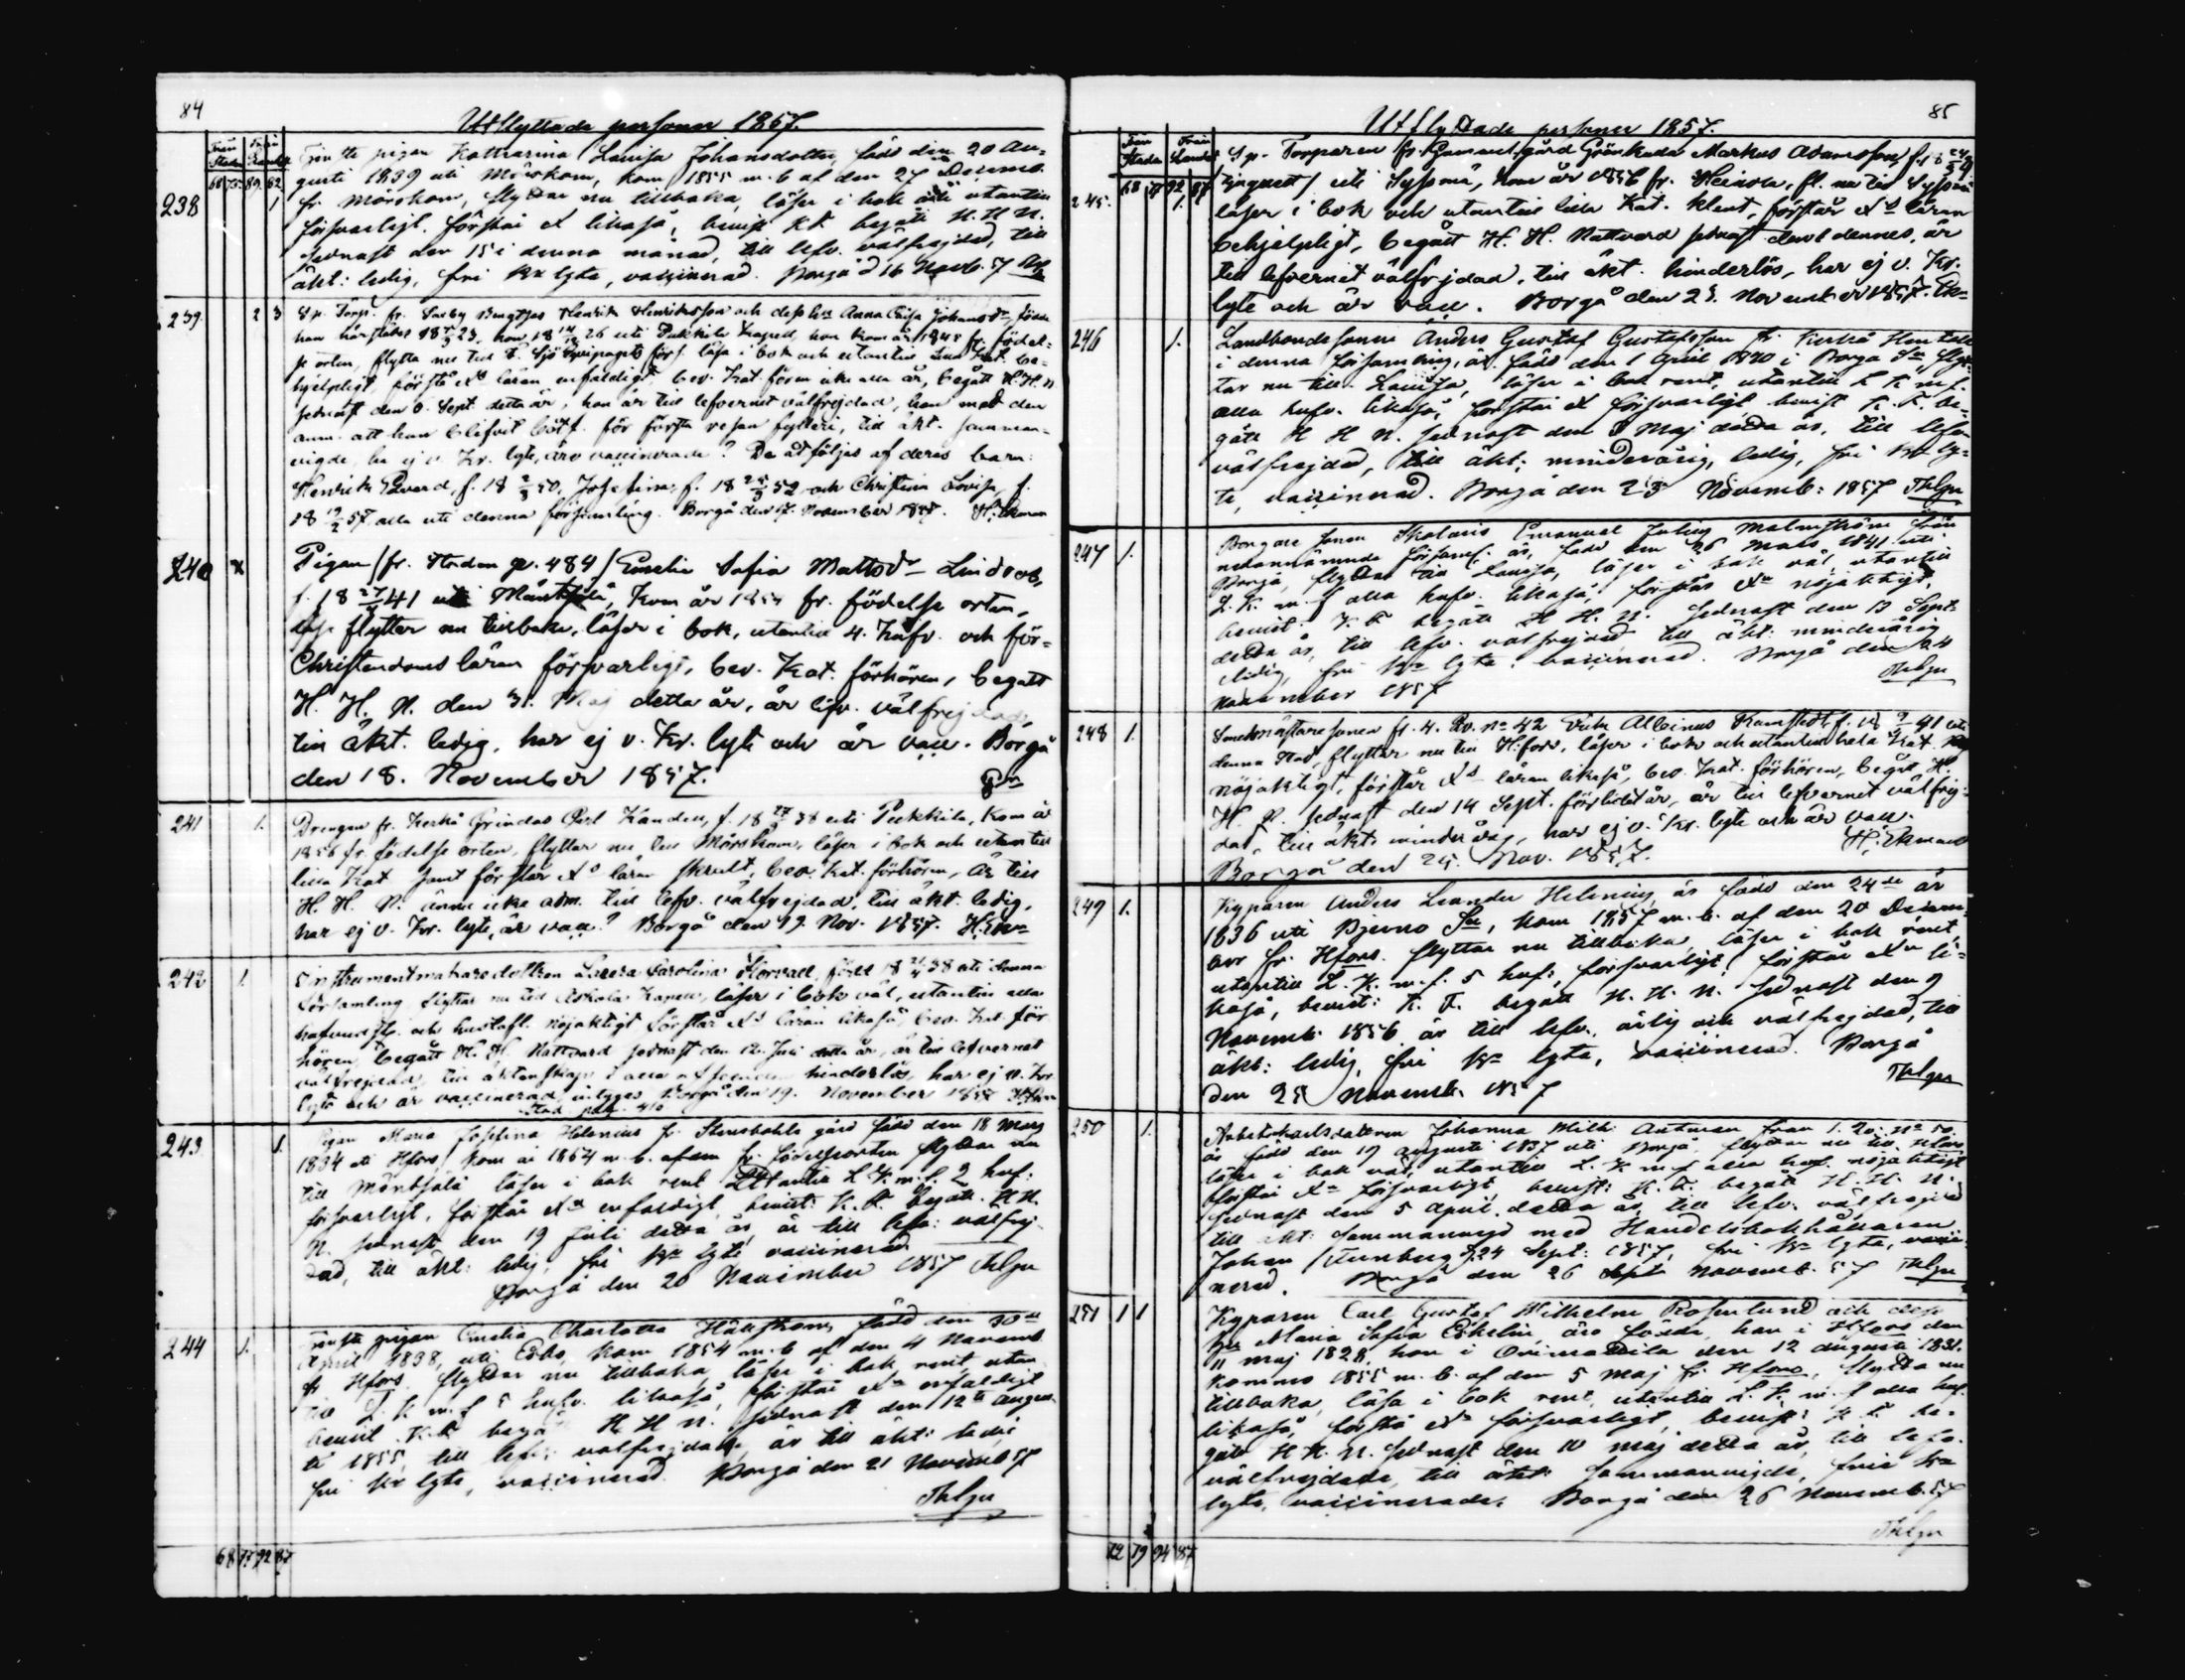 84
Utflyttade personer 1857.
Från Staden Från Landet
68 75 89 82
238 1
Tjenste pigan Kathrarina Lovisa Johansdotter, född den 20 Au-
gusti 1839 uti Mörskom, kom 1855 m. b. af den 27 Decemb.
fr. Mörskom, flyttar nu tillbaka, läser i bok och utantill
försvarligt, förstår likaså, bevist K.F. begått H. H. N.
sednast den 15 i denna månad, till lefv. välfrejdad, till
äkt: ledig, fri Kr lyte, vaccinerad. Borgå d 16 Novb. 57
239. 2 3
Henrik Henriksson och dess hu Anna Caisa Johansdr, födde
han härstädes 18 23, hon 18 26 uti kom år 1848 fr. födel-
se orten, flytta nu till läsa i bok och utantill Kat. be-
hjelpligt, förstå Xds läran enfaldigt, bev. Kat. förh. icke alla år, begått H. H. N.
sednast den 6. Sept. detta år, han är till lefvernet välfrejdad, han med den
anm. att han blifvit bötf. för första resan fylleri, till äkt. samman-
vigde, ha ej v. Kr. lyte, äro vaccinerade? De åtföljas af deras barn:
Henrik Edvard, f. 18 50, Josefina f. 18 52 och Christina Lovisa f.
18 57 alla uti denna församling. Borgå den 17. November 1857. H: Ekman
240 x
Pigan (fr. Staden p. 484) Emelie Sofia Mattsdr Lindroos,
f. 18 27 41 uti Mäntsälä, kom år 1854 fr. födelse orten,
flytter nu tillbaka, läser i bok, utantill 4. Hufv. och för-
Christendoms läran försvarligt, bev. Kat. förhören, begått
H. H. N. den 31. Maj detta år, är lefv. välfrejdad,
till äkt. ledig, har ej v. Kr. lyte och är vacc. Borgå
den 18. November 1857.
241 1.
Drengen fr. Kerkå Carl Kanden, f. 18 38 uti Pukkila, kom år
1856 fr. födelse orten, flyttar nu till Mörskom, läser i bok och utantill
lilla Kat samt förstår Xds läran skralt, bev. Kat. förhören, är till
H. H. N. ännu icke adm. till lefv. välfrejdad, till äkt. ledig,
har ej v. Kr. lyte, är vacc? Borgå den 19. Nov. 1857.
242 1.
Instrumentmakaredottren Laura Carolina född 18 38 uti denna
församling flyttar nu till Askola Kapell, läser i bok väl, utantill alla
och hustafl. nöjaktigt förstår Xds läran likaså, bev. Kat. för-
hören, begått H. H. Nattvard sednast den 12. Juli detta år, är till lefvernet
välfrejdad, till äktenskap hinderlös, har ej v. Kr.
lyte och är vaccinerad, intygas Borgå den 19. November 1857
Stad pag. 410
243 1.
Pigan Maria Josephina Helenius fr. Stensböhle gård född den 18 Maj
1834 uti Hfors kom år 1854 m. b. af den fr. födelseorten flyttar nu
till Mäntsälä läser i bok rent utantill L. K. m. f. 2 huf:
försvarligt, förstår Xn enfaldigt bevist: K. F. begått H. H.
N. sednast den 19 Juli detta år, är till lefv: välfrej-
dad, till äkt: ledig, fri Kr lyte vaccinerad
Borgå den 20 November 1857 Thlgn
244 1.
Tjenste pigan Emelia Charlotta Hällström född den 30de
April 1838, uti Esbo, kom 1854 m. b. af den 4 Novemb.
fr Hfors. flyttar nu tillbaka, läser i bok rent utan-
till L. K. m. f. 5 hufv. likaså, förstår Xn enfaldigt
bevist K. F. begått H H N. sednast den 12te Augus-
ti 1855, till lefv: välfrejdad, är till äkt: ledig
fri Kr lyte, vaccinerad. Borgå den 21 Novemb 57
Thlgn
68 77 92 87
85
Utflyttade personer 1857.
Från Staden Från Landet
68 77 92 87
245. 1.
Sp. Torparen fr. Gammelgård Gränkulla Markus Adamsson, f. 18
uti Sysmä, kom år 1856 fr. Heinola, fl. nu till Sysmä
läser i bok och utantill lilla Kat. klent, förstår Xds läran
behjelpligt, begått H. H. Nattvard sednast den 1 dennes, är
till lefvernet välfrejdad, till äkt. hinderlös, har ej v. Kr.
lyte och är vacc. Borgå den 23. November 1857.
246 1.
Landbondesonen Anders Gustaf Gustafsson fr. Kerkå Hentala
i denna församling, är född den 1 April 1840 i Borgå Sn, flyt-
tar nu till Lovisa, läser i bok rent, utantill L K m f.
alla hufv. likaså, förstår X försvarligt, bevist K. F. be-
gått H H N. sednast den 3 Maj detta år, till lefv.
välfrejdad, till äkt; minderårig, ledig, fri Kr ly-
te, vaccinerad. Borgå den 23 Novemb: 1857 Thlgn
247 1.
Borgare sonen Skolaris Emanuel Julius Malmström från
nedannämnde församl. är född den 26 Mars 1841 uti
Borgå, flyttar till Lovisa, läser i bok väl, utantill
L. K. m. f alla hufv. likaså, förstår Xn nöjaktigt,
bevist: K. F begått H H. N. sednast den 13 Sept.
detta år, till lefv. välfrejdad till äkt: minderårig
ledig, fri Kr lyte, vaccinerad. Borgå den 24
November 1857 Thlgn
248 1.
Smedmästaresonen fr. 4. Qv. No 42 Viktor Albinus Ramstedt, f. 18 41 uti
denna Stad, flyttar nu till H:fors, läser i bok och utantill hela Kat.
nöjaktigt, förstår Xds läran likaså, bev. Kat. förhören, begått H.
H. N. sednast den 14 Sept. förlidet år, är till lefvernet välfrej-
dad, till äkt. minderårig, har ej v. Kr. lyte och är vacc.
Borgå den 25. Nov. 1857. H: Ekman
249 1.
Kyparen Anders Leander Helenius, är född den 24de
1836 uti Bjerno Sn, kom 1857 m. b. af den 20 Decem-
ber fr. Hfors. flyttar nu tillbaka, läser i bok rent
utantill L. K. m. f. 5 huf:, försvarligt, förstår Xn li-
kaså, bevist: K. F. begått H. H. N. sednast den 9
Novemb. 1856 är till lefv. ärlig och välfrejdad, till
äkt: ledig, fri Kr lyte, vaccinerad. Borgå
den 25 Novemb. 1857 Thlgn
250 1.
Arbetskarlsdottren Johanna Wilh: Antman från 1. Qv: No 50
är född den 19 Augusti 1837 uti Borgå, flyttar nu till Hfors
läser i bok väl, utantill L. K m f alla huf. nöjaktigt
förstår Xn försvarligt, bevist: K. F. begått H. H. N.
sednast den 5 April detta år, till lefv. välfrejdad
till äkt: sammanvigd med Handelsbokhållaren
Johan Stenberg d 24 Sept: 1857, fri Kr lyte, vacci-
nerad. Borgå den 26 Sept Novemb. 57 Thlgn
251 1 1
Kyparen Carl Gustaf Wilhelm Rosenlund och dess
hu Maria Sofia Eskelin, äro födde, han i Hfors den
11 Maj 1828, hon i Orimattila den 12 Augusti 1831.
kommo 1855 m. b. af den 5 Maj fr. Hfors, flytta nu
tillbaka, läsa i bok rent, utantill L. K. m. f alla huf.
likaså, förstå Xn försvarligt, bevist: K F be-
gått H. H. N. sednast den 10 Maj detta år, till lefv.
välfrejdade, till äkt: sammanvigde, fria Kr
lyte, vaccinerade. Borgå den 26 Novemb. 57
Thlgn
72 79 94 87